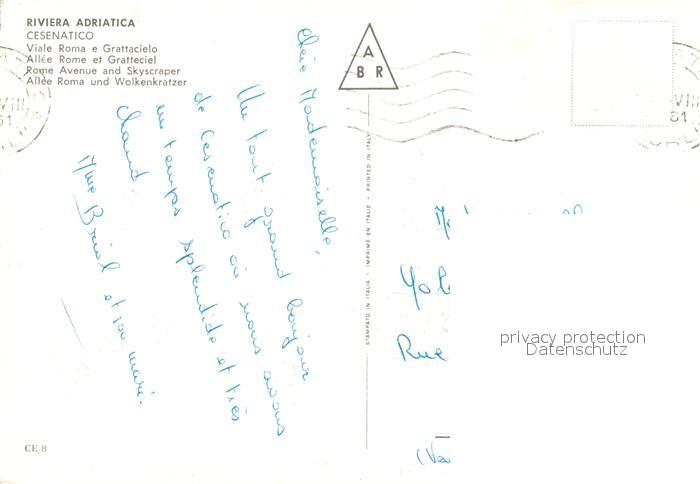 RIVIERA ADRIATICA
CESENATICO
Viale Roma e Grattacielo
Allée Rome et Gratteciel
Rome Avenue and Skyscraper
Allée Roma und Wolkenkratzer
A
B R
VIII
61
VIII
61
Chère Mademoiselle,
Un tout grand bonjour
de Cesenatico où nous avons
un temps splendide et très
chaud.
Mme Brial et son mari.
STAMPATO IN ITALIA - IMPRIMÉ EN ITALIE - PRINTED IN ITALY
Rue
privacy protection
Datenschutz
CE/8